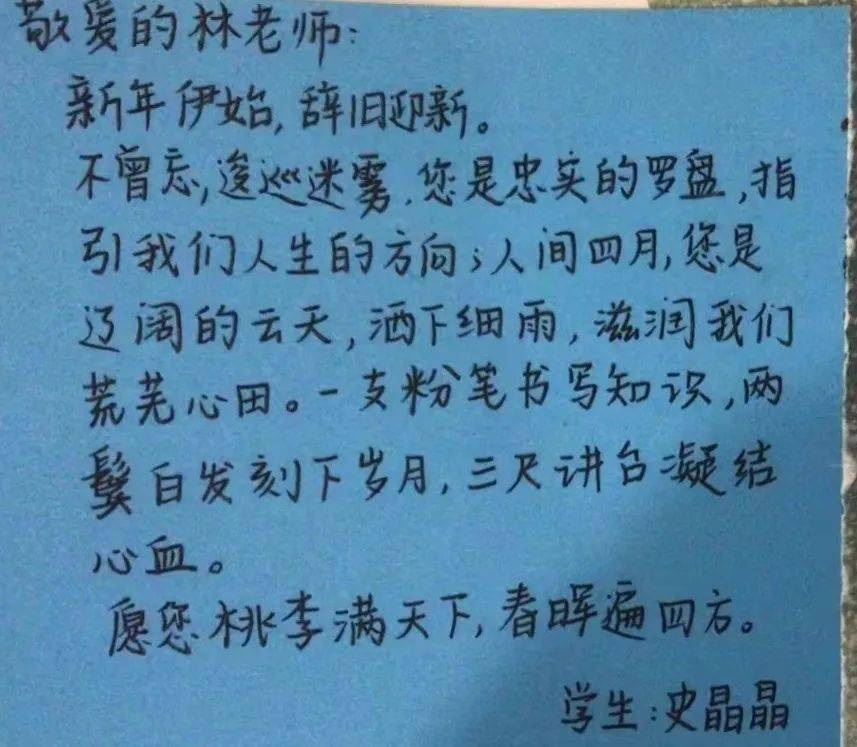 敬爱的林老师:
新年伊始,辞旧迎新。
不曾忘,逡巡迷雾,您是忠实的罗盘,指
引我们人生的方向;人间四月,您是
辽阔的云天,洒下细雨,滋润我们
荒芜心田。一支粉笔书写知识,两
鬓白发刻下岁月,三尺讲台凝结
心血。
愿您桃李满天下,春晖遍四方。
学生:史晶晶